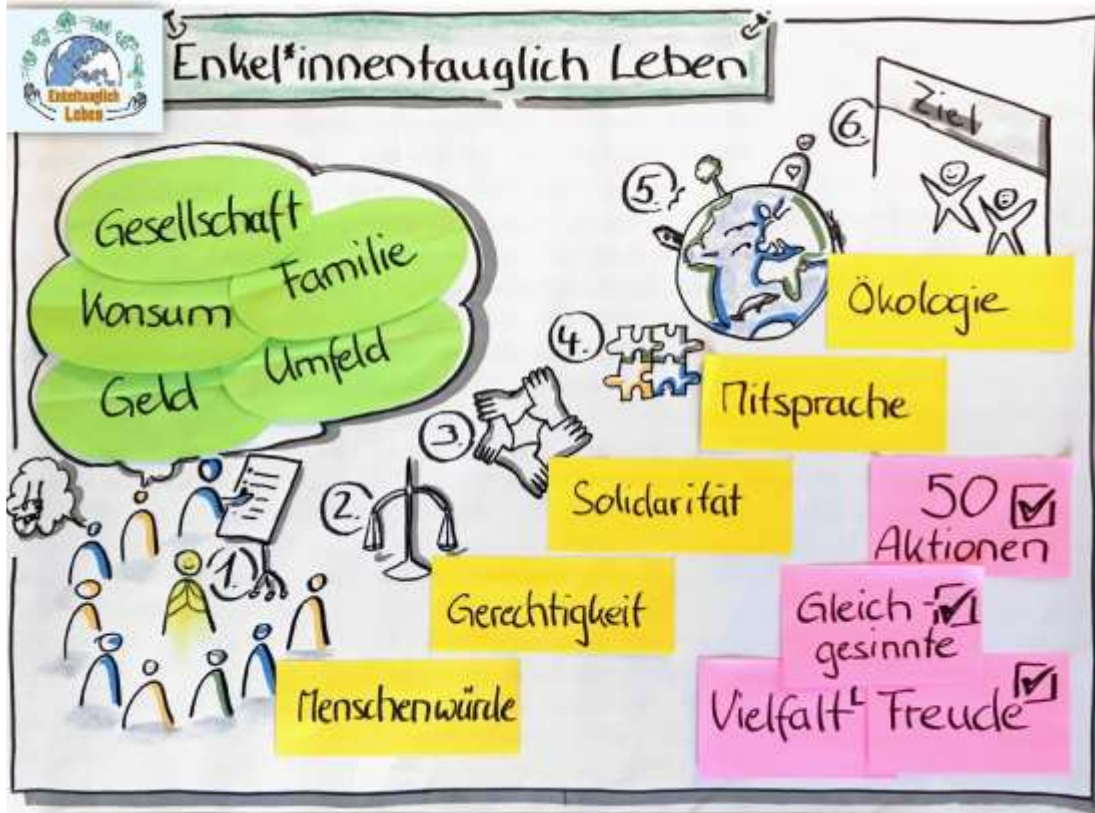 Enkeltauglich
Leben
Enkel*innentauglich Leben
Gesellschaft
Familie
Konsum
Umfeld
Geld
1.
2.
3.
4.
5.
6.
Ziel
Ökologie
Mitsprache
Solidarität
Gerechtigkeit
Menschenwürde
50
Aktionen
Gleich-
gesinnte
Vielfalt
Freude